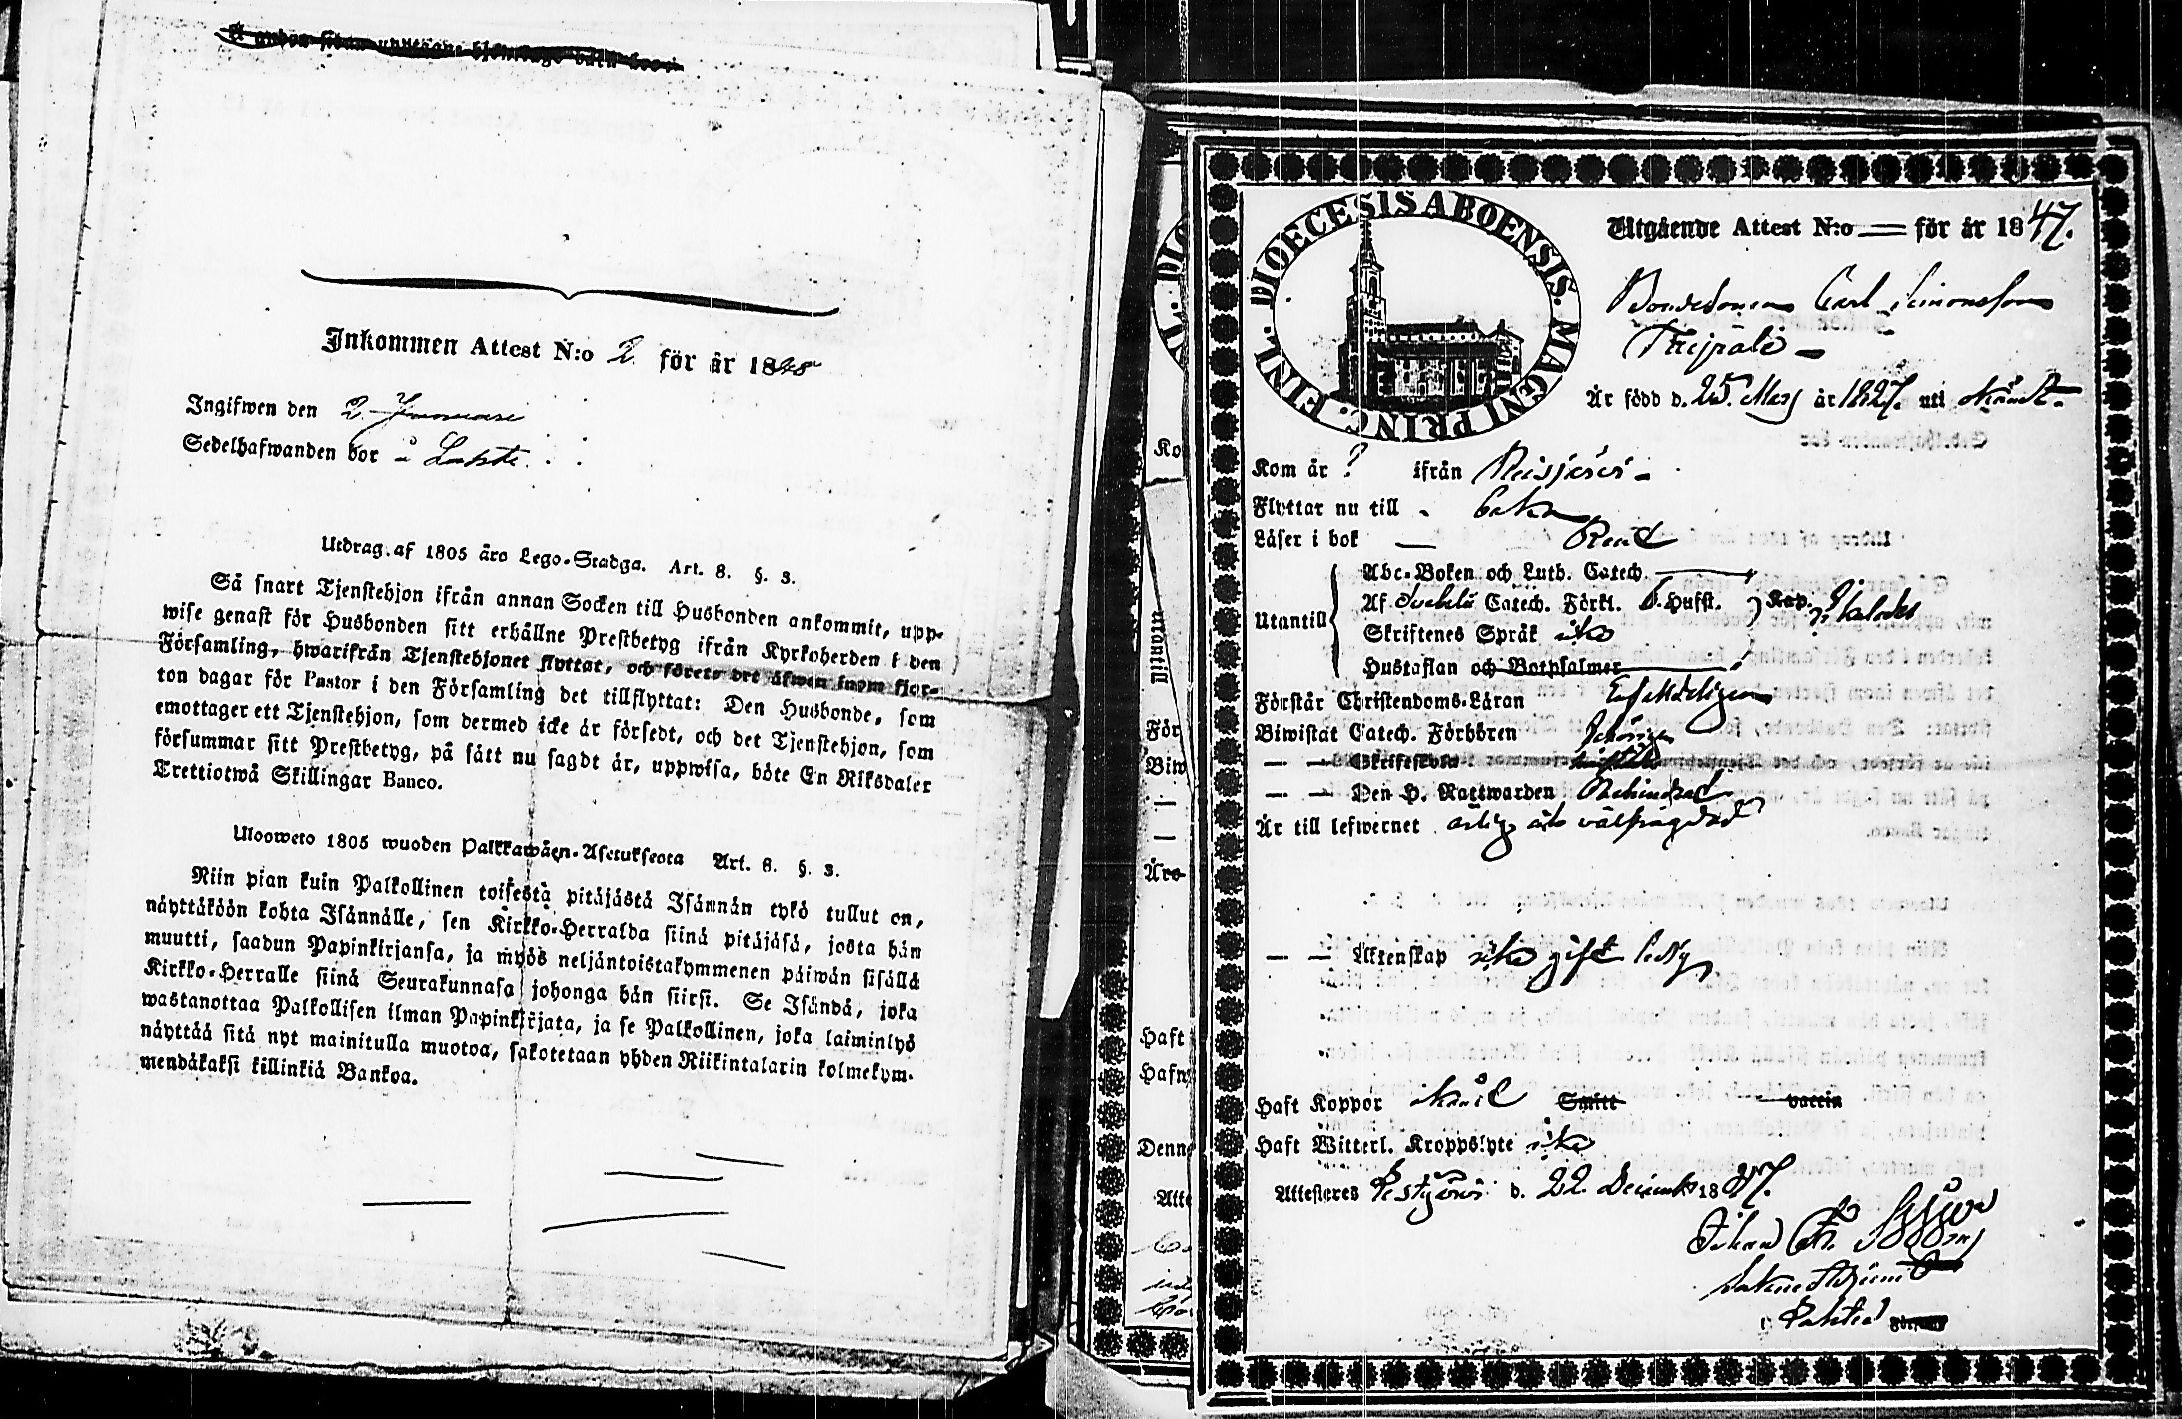 Inkommen Attest N:o 2 för år 1848
Ingifwen den 2 Januari
Sedelhafwanden bor i
Utdrag af 1805 års Lego-Stadga. Art. 8. §. 3.
Så snart Tjenstehjon ifrån annan Socken till Husbonden ankommit, upp-
wise genast för Husbonden sitt erhållne Prestbetyg ifrån Kyrkoherden i den
Församling, hwarifrån Tjenstehjonet flyttat, och förete det äfwen inom fjor-
ton dagar för Pastor i den Församling det tillflyttat: Den Husbonde, som
emottager ett Tjenstehjon, som dermed icke är försedt, och det Tjenstehjon, som
försummar sitt Prestbetyg, på sätt nu sagdt är, uppwisa, böte En Riksdaler
Trettiotwå Skillingar Banco.
Uloswето 1805 wuoden Palkkawäen-Asetuksesta Art. 8. §. 3.
Niin pian kuin Palkollinen toisesta pitäjästä Isännän tykö tullut on,
näyttäköön kohta Isännälle, sen Kirkko-Herralda siinä pitäjäsä, josta hän
muutti, saadun Papinkirjansa, ja myös neljäntoistakymmenen päiwän sisällä
Kirkko-Herralle siinä Seurakunnasa johonga hän siirsi. Se Isändä, joka
wastanottaa Palkollisen ilman Papinkirjata, ja se Palkollinen, joka laiminlyö
näyttää sitä nyt mainitulla muotoa, sakotetaan yhden Riikintalarin kolmekym-
mendäkaksi killinkiä Bankoa.
FINL. DIOECESIS ABOENSIS. MAGNI PRINC.
Utgående Attest N:o — för år 1847.
Bondesonen Carl Simonsson
Är född d. 25. Mars år 1827. uti
Kom år ? ifrån Reisjärvi
Flyttar nu till
Läser i bok — Rent
Utantill
Abc-Boken och Luth. Catech.
Af Svebelii Catech. Förkl. 6. Hufst. Kap.
Skriftenes Språk icke
Hustaflan och Botpsalmer
Förstår Christendoms-Läran
Biwistat Catech. Förhören
— — Skriftskola
— — Den H. Nattwarden
Är till lefwernet ärlig och välfrägdad
— — Äktenskap icke gift ledig
Haft Koppor Smitt vaccin
Haft Witterl. Kroppslyte icke
Attesteres Pestijärvi d. 22 December 1847.
Johan